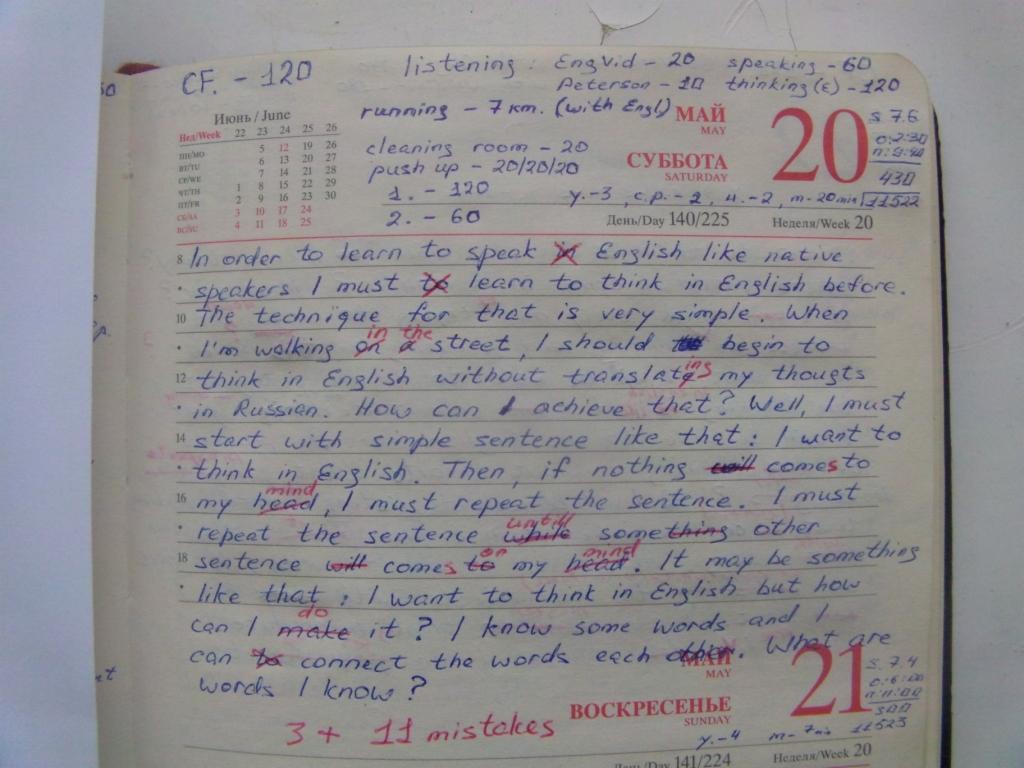 CF. - 120
listening: Engvid - 20 speaking - 60
Peterson - 10 thinking (E) - 120
running - 7 km. (with Engl)
МАЙ
MAY
20
s 7.6
Июнь / June
Нед/Week 22 23 24 25 26
ПН/MO 5 12 19 26
ВТ/TU 6 13 20 27
СР/WE 7 14 21 28
ЧТ/TH 1 8 15 22 29
ПТ/FR 2 9 16 23 30
СБ/SA 3 10 17 24
ВС/SU 4 11 18 25
cleaning room - 20
push up - 20/20/20
1. - 120
2. - 60
СУББОТА
SATURDAY
430
11522
y.-3, c.p.-2, u.-2, m-20min
День/Day 140/225 Неделя/Week 20
8 In order to learn to speak in English like native
speakers I must to learn to think in English before.
10 The technique for that is very simple. When
in the
I'm walking on a street, I should begin to
ing
12 think in English without translate my thougts
in Russian. How can I achieve that? Well, I must
14 start with simple sentence like that: I want to
think in English. Then, if nothing will comes to
mind
16 my head, I must repeat the sentence. I must
untill
repeat the sentence while something other
on mind
18 sentence will comes to my head. It may be something
like that: I want to think in English but how
do
can I make it? I know some words and I
can to connect the words each other. What are
words I know?
МАЙ
MAY
21
s. 7.4
0:6:00
n:11:00
300
11523
3 + 11 mistakes
ВОСКРЕСЕНЬЕ
SUNDAY
y.-4 m-7min
День/Day 141/224 Неделя/Week 20